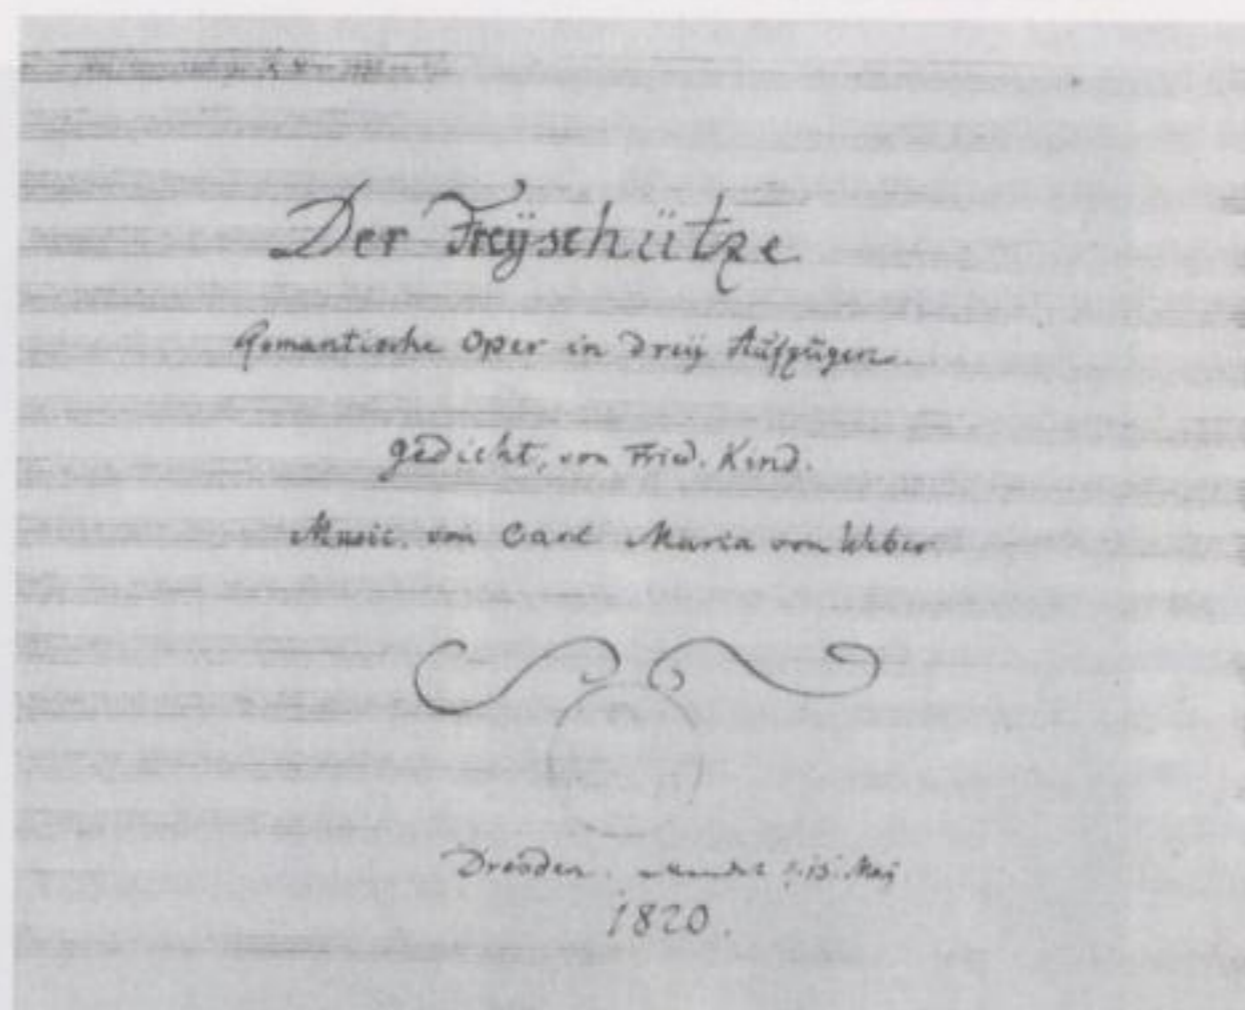 Der Freÿschütze
Romantische Oper in dreÿ Aufzügen.
gedicht, von Fried. Kind.
Music. von Carl Maria von Weber
Dresden. 13. May
1820.